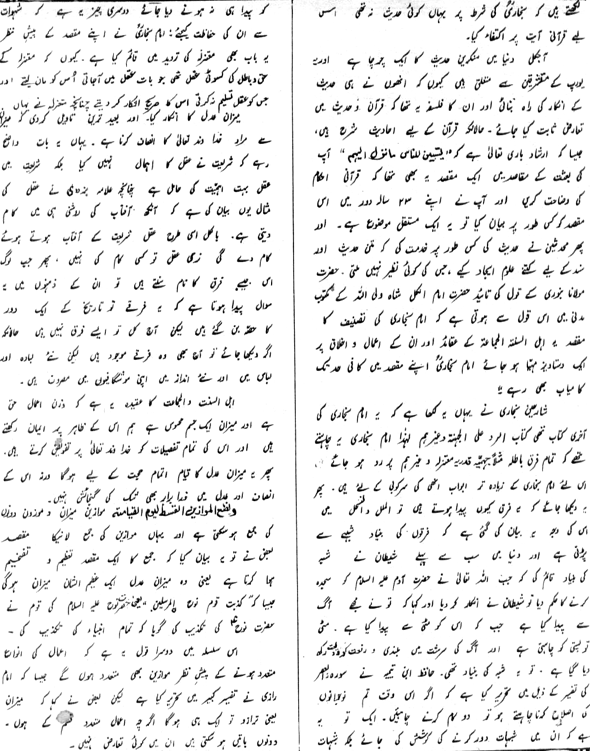 لکھتے ہیں کہ بخاریؒ کی شرط پر یہاں کوئی حدیث نہ تھی اس
لیے قرآنی آیت پر اکتفاء کیا۔
آجکل دنیا میں منکرین حدیث کا ایک چرچا ہے اور یہ
یورپ کے مستشرقین سے متعلق ہیں کیوں کہ انھوں نے ہی حدیث
کے انکار کی راہ بتائی اور ان کا فلسفہ یہ تھا کہ قرآن و حدیث میں
تعارض ثابت کیا جائے۔ حالانکہ قرآن کے لیے احادیث شرح ہیں،
جیسا کہ ارشاد باری تعالیٰ ہے کہ "لیتبین للناس مانزل الیھم" آپ
کی بعثت کے مقاصد میں ایک مقصد یہ بھی تھا کہ قرآنی احکام
کی وضاحت کریں اور آپ نے اپنے ۲۳ سالہ دور میں اس
مقصد کو کس طور پر بیان کیا تو یہ ایک مستقل موضوع ہے۔ اور
پھر محدثین نے حدیث کی کس طور پر خدمت کی کہ فن حدیث اور
سند کے لیے کتنے علوم ایجاد کیے، جن کی کوئی نظیر نہیں ملتی۔ حضرت
مولانا بنوری کے قول کی تائید حضرت امام الکل شاہ ولی اللہ کے مکتوب
مدنی میں اس قول سے ہوتی ہے کہ امام بخاری کی تصنیف کا
مقصد یہ اہل السنۃ والجماعۃ کے عقائد اور ان کے اعمال و اخلاق پر
ایک دستاویز مہیا ہو جائے امام بخاریؒ اپنے مقصد میں کافی حد تک
کامیاب بھی رہے !!
شارحین بخاری نے یہاں یہ لکھا ہے کہ یہ امام بخاری کی
آخری کتاب تھی کتاب الرد علی الجہمیۃ وغیرہم لہٰذا امام بخاری یہ چاہتے
تھے کہ تمام فرق باطلہ مثلاً جہمیہ قدریہ معتزلہ وغیرہم پر رد ہو جائے
اس لئے امام بخاری کے زیادہ تر ابواب انھی کی سرکوبی کے لئے ہیں۔ پھر
یہ دیکھا جائے کہ یہ فرق کیوں پیدا ہوتے ہیں تو الملل والنحل میں
اس کی وجہ یہ بیان کی گئی ہے کہ فرقوں کی بنیاد شبہے سے
پڑتی ہے اور دنیا میں سب سے پہلے شیطان نے شبہ
کی بنیاد قائم کی کہ جب اللہ تعالیٰ نے حضرت آدم علیہ السلام کو سجدہ
کرنے کا حکم دیا تو شیطان نے انکار کر دیا اور کہا کہ تو نے مجھے آگ
سے پیدا کیا ہے جب کہ اس کو مٹی سے پیدا کیا ہے۔ مٹی
تو پستی کو چاہتی ہے اور آگ کی سرشت میں بلندی و رفعت کو
دیا گیا ہے۔ تو یہ شبہ کی بنیاد تھی۔ حافظ ابن تیمیہ نے سورۃ العصر
کی تفسیر کے ذیل میں تحریر کیا ہے کہ اگر اس وقت تم نوجوانوں
کی اصلاح کرنا چاہتے ہو تو دو کام کرنے چاہییں۔ ایک تو یہ
ہے کہ ان میں شبہات دور کرنے کی کوشش کی جائے بلکہ شبہات
کو پیدا ہی نہ ہونے دیا جائے دوسری چیز یہ ہے کہ شہوات
سے ان کی حفاظت کیجئے: امام بخاریؒ نے اپنے مقصد کے پیش نظر
یہ باب بھی معتزلہ کی تردید میں قائم کیا ہے۔ کیوں کہ معتزلہ کے
حق و باطل کی کسوٹی عقل تھی جو بات عقل میں آجاتی اس کو مان لیتے اور
جس کو عقل تسلیم نہ کرتی اس کا صریح انکار کر دیتے چنانچہ معتزلہ نے یہاں
میزان عدل کا انکار کیا۔ اور بعید ترین تاویل کر دی کہ میزان
سے مراد خداوند تعالیٰ کا انصاف کرنا ہے۔ یہاں یہ بات واضح
رہے کہ شریعت نے عقل کا اہمال نہیں کیا بلکہ شریعت میں
عقل بہت اہمیت کی حامل ہے چنانچہ علامہ بزدوی نے عقل کی
مثال یوں بیان کی ہے کہ آنکھ آفتاب کی روشنی ہی میں کام
دیتی ہے۔ بالکل اسی طرح عقل شریعت کے آفتاب ہوتے ہوئے
کام دے گی نری عقل تو کسی کام کی نہیں، پھر جب لوگ
اس جیسے فرق کا نام سنتے ہیں تو ان کے ذہنوں میں یہ
سوال پیدا ہوتا ہے کہ یہ فرقے تو تاریخ کے ایک دور
کا حصہ بن گئے ہیں لیکن آج کل تو ایسے فرق نہیں ہیں حالانکہ
اگر دیکھا جائے تو آج بھی وہ فرقے موجود ہیں لیکن نئے لبادہ اور
لباس میں اور نئے انداز میں اپنی موشگافیوں میں مصروف ہیں۔
اہل السنت والجماعت کا عقیدہ یہ ہے کہ وزن اعمال حق
ہے اور میزان ایک جسم محسوس ہے ہم اس کے ظاہر پر ایمان رکھتے
ہیں اور اس کی تمام تفصیلات کو خداوند تعالیٰ پر تفویض کرتے ہیں۔
پھر یہ میزان عدل کا قیام اتمام حجت کے لیے ہوگا ورنہ اس کے
انصاف اور عدل میں ذرا برابر بھی شک کی گنجائش نہیں۔
ونضع الموازین القسط لیوم القیامۃ موازین میزان و موزون دونوں
کی جمع ہو سکتی ہے اور یہاں موازین کی جمع لانے کا مقصد
بعض نے تو یہ بیان کیا کہ جمع کا ایک مقصد تعظیم و تفخیم
ہوا کرتا ہے یعنی وہ میزان عدل ایک عظیم الشان میزان ہوگی
جیسا کہ "کذبت قوم نوح المرسلین" یعنی حضرت نوح علیہ السلام کی قوم نے
حضرت نوحؑ کی تکذیب کی گویا کہ تمام انبیاء کی تکذیب کی۔
اس سلسلہ میں دوسرا قول یہ ہے کہ اعمال کی انواع
متعدد ہونے کے پیش نظر موازین بھی متعدد ہوں گے جیسا کہ امام
رازی نے تفسیر کبیر میں تحریر کیا ہے لیکن بعض نے کہا کہ میزان
یعنی ترازو تو ایک ہی ہوگا اگرچہ اعمال متعدد قسم کے ہوں۔
دونوں باتیں ہو سکتی ہیں ان میں کوئی تعارض نہیں۔